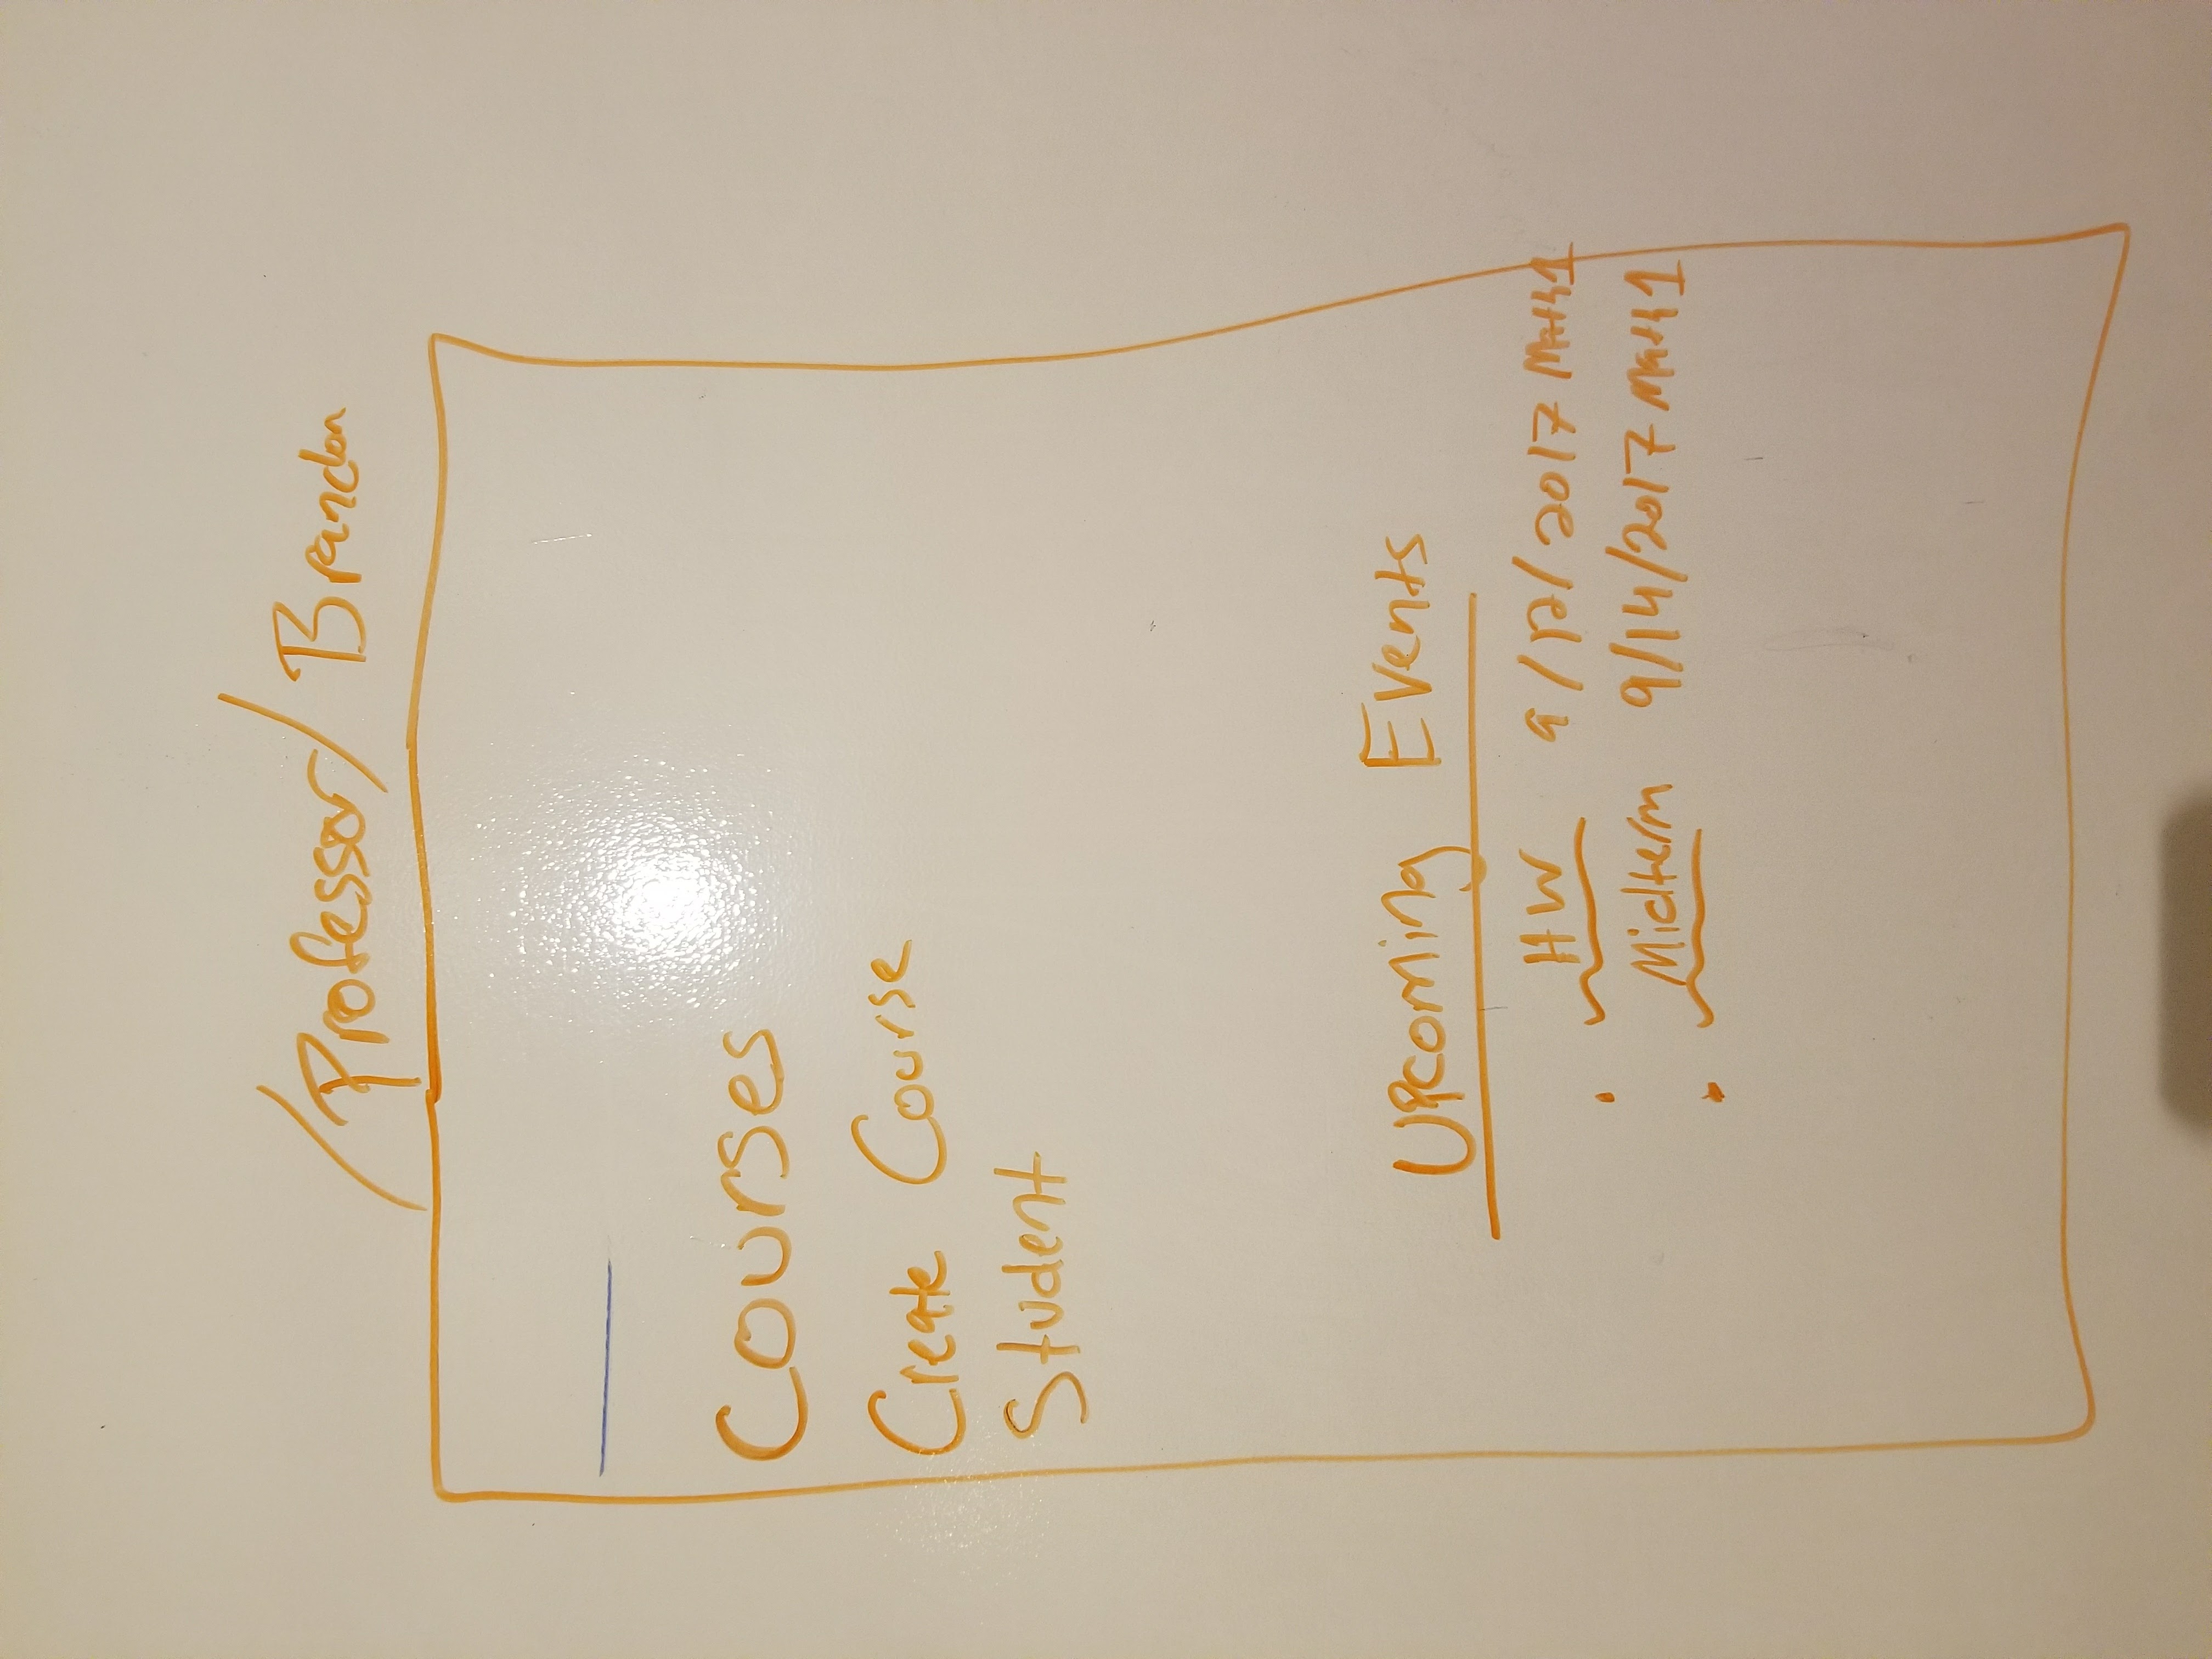 /Professor/Brandon
Courses
Create Course
Student
Upcoming Events
. HW 9/12/2017 Math1
. Midterm 9/14/2017 Math1